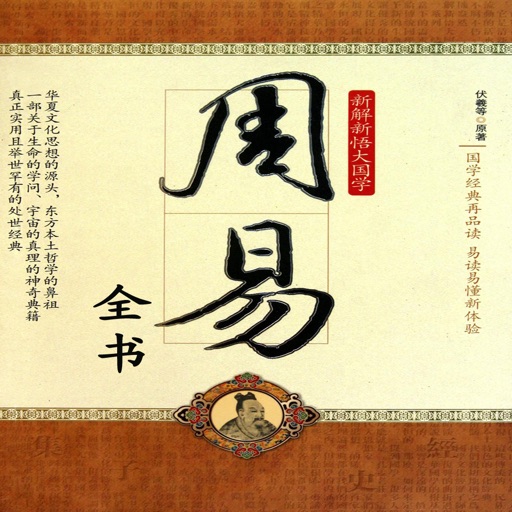 周易
全书
新解新悟大国学
伏羲等◎原著
国学经典再品读 易读易懂新体验
华夏文化思想的源头，东方本土哲学的鼻祖
一部关于生命的学问、宇宙的真理的神奇典籍
真正实用且举世罕有的处世经典
集
子
史
經